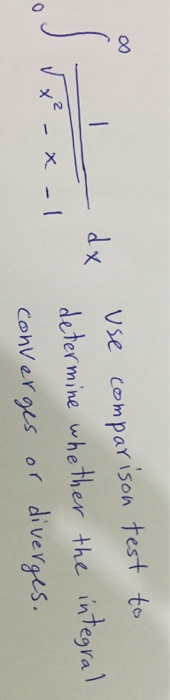 ∫₀^∞ 1/√(x² - x - 1) dx
Use comparison test to
determine whether the integral
converges or diverges.